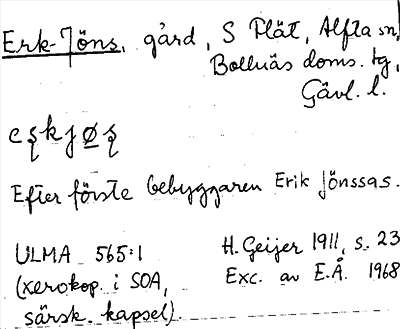 Erk-Jöns, gård, S Plät, Alfta sn,
Bollnäs doms. tg,
Gävl. l.
Efter förste bebyggaren Erik Jönssas.
ULMA 565:1
(xerokop. i SOA,
särsk. kapsel).
H. Geijer 1911, s. 23
Exc. av E.Å. 1968